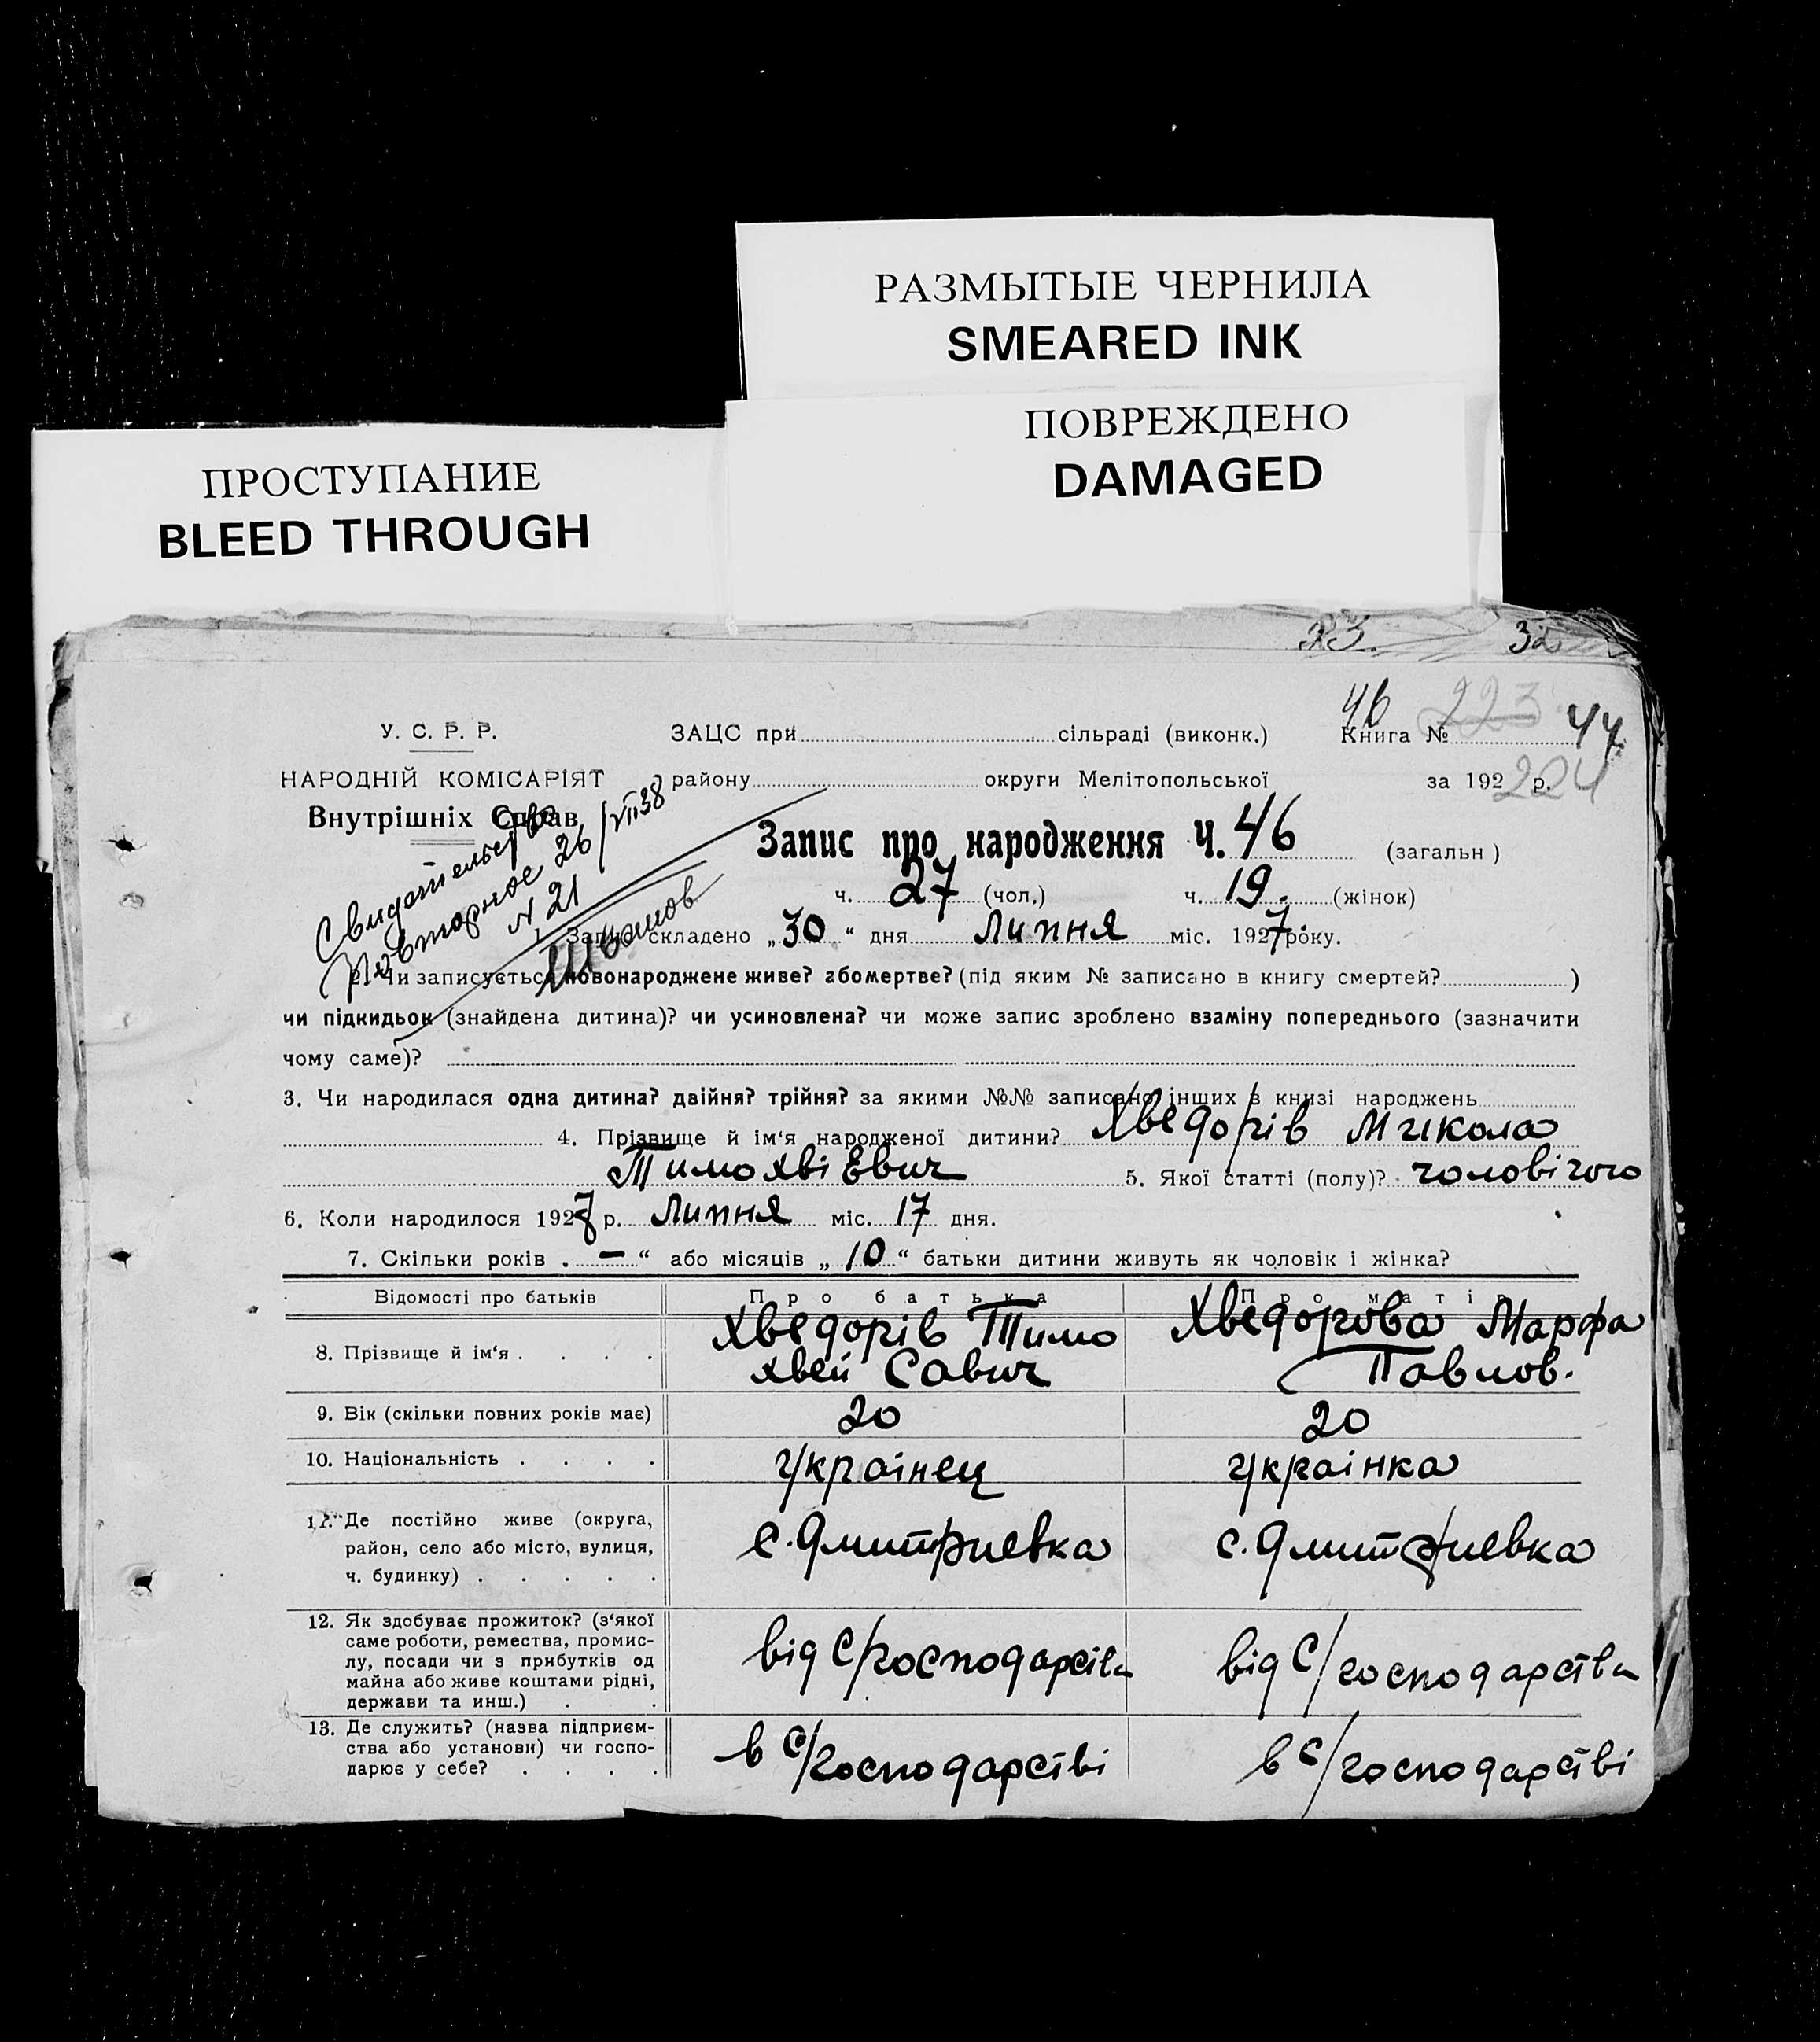 РАЗМЫТЫЕ ЧЕРНИЛА
SMEARED INK
ПОВРЕЖДЕНО
DAMAGED
ПРОСТУПАНИЕ
BLEED THROUGH
23. 32
46 223 44
У. С. Р. Р. ЗАЦС при сільраді (виконк.) Книга №
НАРОДНІЙ КОМІСАРІЯТ району округи Мелітопольської за 192 р. 224
Внутрішніх Справ
Свидетельство
повторное 26/VII 38
№ 21
Запис про народження Ч. 46 (загальн )
ч. 27 (чол.) ч. 19. (жінок)
1. Запис складено „30“ дня Липня міс. 1927 року.
2. Чи записується новонароджене живе? або мертве? (під яким № записано в книгу смертей? )
чи підкидьок (знайдена дитина)? чи усиновлена? чи може запис зроблено взаміну попереднього (зазначити
чому саме)?
3. Чи народилася одна дитина? двійня? трійня? за якими №№ записано інших в книзі народжень
4. Прізвище й ім‘я народженої дитини? Хведорів Микола
Тимохвієвич 5. Якої статті (полу)? чоловічого
6. Коли народилося 1927 р. Липня міс. 17 дня.
7. Скільки років . — “ або місяців „ 10 “ батьки дитини живуть як чоловік і жінка?
Відомості про батьків Про батька Про матір
8. Прізвище й ім‘я . . . . Хведорів Тимо Хведорова Марфа
хвей Савич Павлов.
9. Вік (скільки повних років має) 20 20
10. Національність . . . . українец українка
11. Де постійно живе (округа,
район, село або місто, вулиця, с. Дмитриевка с. Дмитриевка
ч. будинку) . . . . .
12. Як здобуває прожиток? (з‘якої
саме роботи, ремества, промис-
лу, посади чи з прибутків од від С/господарства від С/господарства
майна або живе коштами рідні,
держави та инш.) . .
13. Де служить? (назва підприєм-
ства або установи) чи госпо- в С/господарстві в С/господарстві
дарює у себе? . . . .